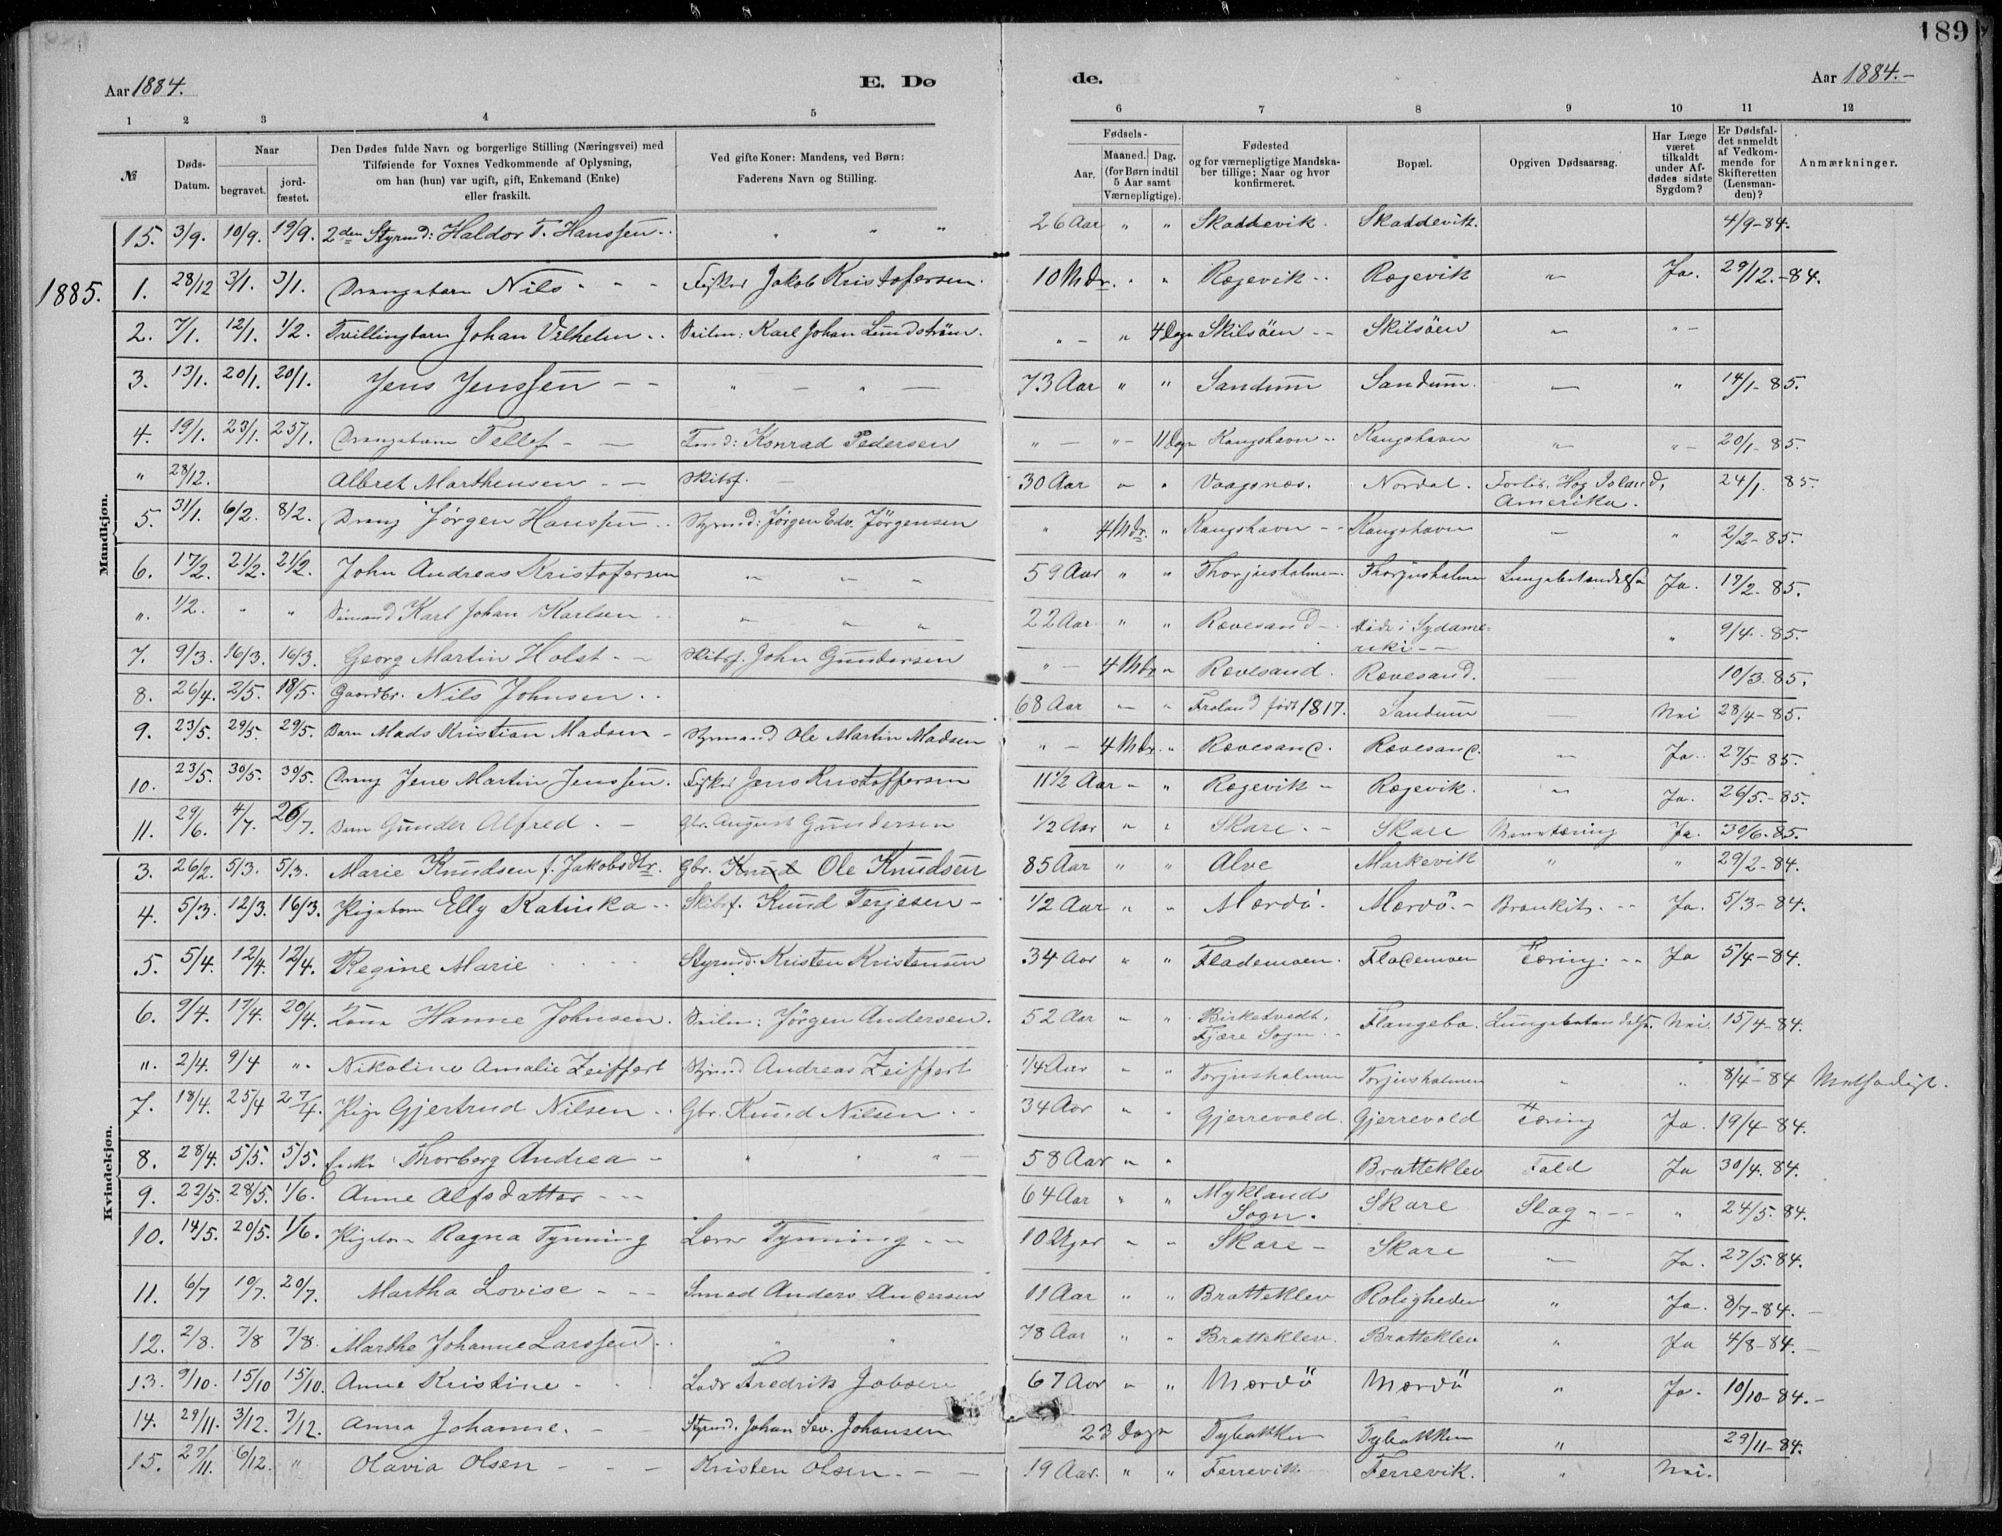 189
Aar 1884.
E. Dø
de.
Aar 1884.-
1 2 3 4 5 6 7 8 9 10 11 12
№
Døds-Datum.
Naar
begravet.
jord-fæstet.
Den Dødes fulde Navn og borgerlige Stilling (Næringsvei) med
Tilføiende for Voxnes Vedkommende af Oplysning,
om han (hun) var ugift, gift, Enkemand (Enke)
eller fraskilt.
Ved gifte Koner: Mandens, ved Børn:
Faderens Navn og Stilling.
Fødsels-
Aar.
Maaned. Dag.
(for Børn indtil
5 Aar samt
Værnepligtige).
Fødested
og for værnepligtige Mandska-
ber tillige: Naar og hvor
konfirmeret.
Bopæl.
Opgiven Dødsaarsag.
Har Læge
været
tilkaldt
under Af-
dødes sidste
Sygdom?
Er Dødsfal-
det anmeldt
af Vedkom-
mende for
Skifteretten
(Lensman-
den)?
Anmærkninger.
Mandkjøn.
15. 3/9. 10/9. 19/9. 2den Styrmd: Haldor T. Hanssen.. " " " 26 Aar " " Skaddevik. Skaddevik. 4/9-84.
1885.
1. 28/12 3/1. 3/1. Drengebarn Nils - - - Fisker Jakob Kristofersen. 10 Mdr. " " Rægevik.. Rægevik " Ja. 29/12.-84.
2. 7/1. 12/1. 1/2. Tvillingbarn Johan Vilhelm .. Seilm: Karl Johan Lundstrøm. " - " 4 Dage Skilsöen -- Skilsöen " " -
3. 13/1. 20/1. 20/1. Jens Jenssen - - " - " - 73 Aar " " Sandum Sandum. - " 14/1-85.
4. 19/1. 23/1. 25/1. Drengebarn Tellef - - Tmd: Konrad Pedersen " - " - 11 Dage Kongshavn .. Kongshavn " " - 20/1-85.
" 28/12. Albret Marthensen - - Skibsf. - 30 Aar " " Vaagsnæs. Nordal. Forlis. Hog Island, 24/1. 85.
Amerika.
5. 31/1. 6/2. 8/2. Dreng Jørgen Hanssen .. Styrmd: Jørgen Edv. Jørgensen " 4 Mdr. " Kongshavn - - Kongshavn - " 2/2-85.
6. 17/2. 21/2. 21/2. John Andreas Kristofersen " " " 59 Aar " " Thorjusholmen. Thorjusholmen Lungebetændelse Ja. 17/2-85.
". 1/2. " " Sømand Karl Johan Karlsen .. " " " 22 Aar " " Rævesand -. Död i Sydame-
riki - - " 9/4-85.
7. 9/3. 16/3. 16/3. Georg Martin Holst - - Skibsf. John Gundersen " - 4 Mdr " Rævesand. Rævesand. - 10/3.85.
8. 26/4. 2/5. 18/5. Gaardbr. Nils Johnsen .. 68 Aar " " Froland født 1817. Sandum - Nei 28/4-85.
9. 23/5. 29/5. 29/5. Barn Mads Kristian Madsen - Styrmand Ole Martin Madsen " - 4 Mdr. " Rævesand. Rævesand. " Ja.. 27/5-85.
10. 23/5. 30/5. 30/5. Dreng Jens Martin Jenssen. Fisker Jens Kristoffersen 11 1/2 Aar " " Rægevik " Rægevik. " Ja. 26/5.-85.
11. 29/6. 4/7. 26/7. Barn Gunder Alfred. - Gbr. August Gundersen 1/2 Aar " " Skare. - Skare Ja. 30/6.85.
Kvindekjøn.
3. 26/2. 5/3. 5/3. Marie Knudsen f. Jakobsdtr. Gbr. Knud Ole Knudsen 85 Aar " " Alve Markevik " " 29/2-84.
4. 5/3. 12/3. 16/3. Pigebarn Elly Katinka .. Skibsf. Knud Terjesen - 1/2 Aar " " Mærdö. Mærdö. - Bronkit. - - Ja. 5/3-84.
5. 5/4. 12/4. 12/4. Regine Marie Styrmd. Kristen Kristensen 34 Aar " " Flademoen. Flademoen Tæring. - - Ja 5/4-84.
6. 9/4. 17/4. 20/4. Kone Hanne Johnsen. Seilm: Jørgen Andersen. 52 Aar " " Birketvedt,
Fjære Sogn - - Flangebo. Lungebetændelse. Nei. 15/4-84.
". 2/4. 9/4 ". Nikoline Amalie Zeiffert Styrmd Andreas Zeiffert 1/4 Aar " " Torjusholmen Torjusholmen " " 8/4-84
7. 18/4. 25/4 27/4. Pige Gjertrud Nilsen .. Gbr. Knud Nilsen .. 34 Aar " " Gjerrevold. Gjerrevold Tæring Ja. 19/4-84.
8. 28/4. 5/5. 5/5. Enke Thorborg Andrea - " " " - 58 Aar " " Bratteklev Fald Ja 30/4.84.
9. 22/5. 28/5. 1/6. Anne Alfsdatter - - - 64 Aar " " Myklands
Sogn. Skare Slag - - - " 24/5.84.
10. 14/5. 20/5. 1/6. Pigebarn Ragna Tynning Lærer Tynning - - 10 Uger " " Skare - Skare - Ja. 27/5.84.
11. 6/7 10/7. 20/7. Martha Lovise - - - Smed Anders Andersen 11 Aar " " Bratteklev Roligheden " Ja. 8/7-84.
12. 2/8. 7/8 7/8. Marthe Johanne Larssen .. " " 78 Aar " " Bratteklev. Bratteklev " Ja 4/8-84.
13. 9/10. 15/10 15/10. Anne Kristine - Lods Fredrik Jobsen 67 Aar " " Mærdö Mærdö " Ja. 10/10-84.-
14. 29/11. 3/12. 7/12. Anna Johanne. - - Styrmd. Johan Sev. Johansen 23 Dage Dybakken Dybakken " 29/11-84.
15. 27/11. 6/12. " Olavia Olsen - - - Kristen Olsen. - - 19 Aar. " " Ferrevik Ferrevik. " Nei.